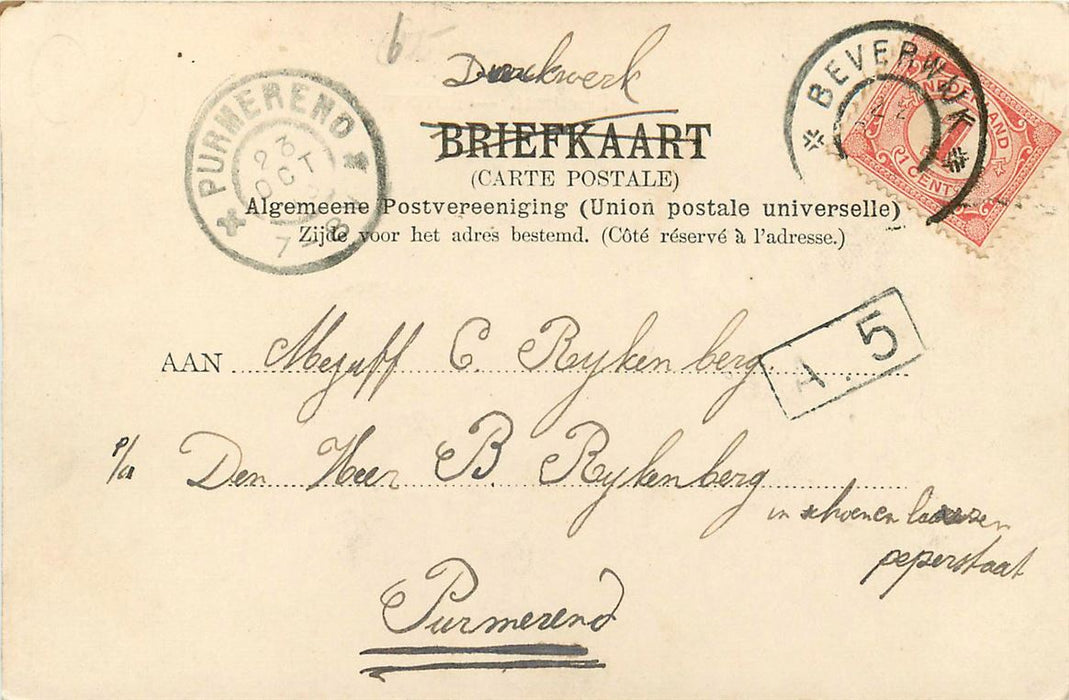 Drukwerk
BRIEFKAART
(CARTE POSTALE)
Algemeene Postvereeniging (Union postale universelle)
Zijde voor het adres bestemd. (Côté réservé à l'adresse.)
PURMEREND
23 OCT
7-8
BEVERWIJK
NEDERLAND
1
CENT
A. 5
AAN Mejuff C. Rijkenberg.
p/a Den Heer B Rijkenberg
in schoenen laarzen
peperstaat
Purmerend